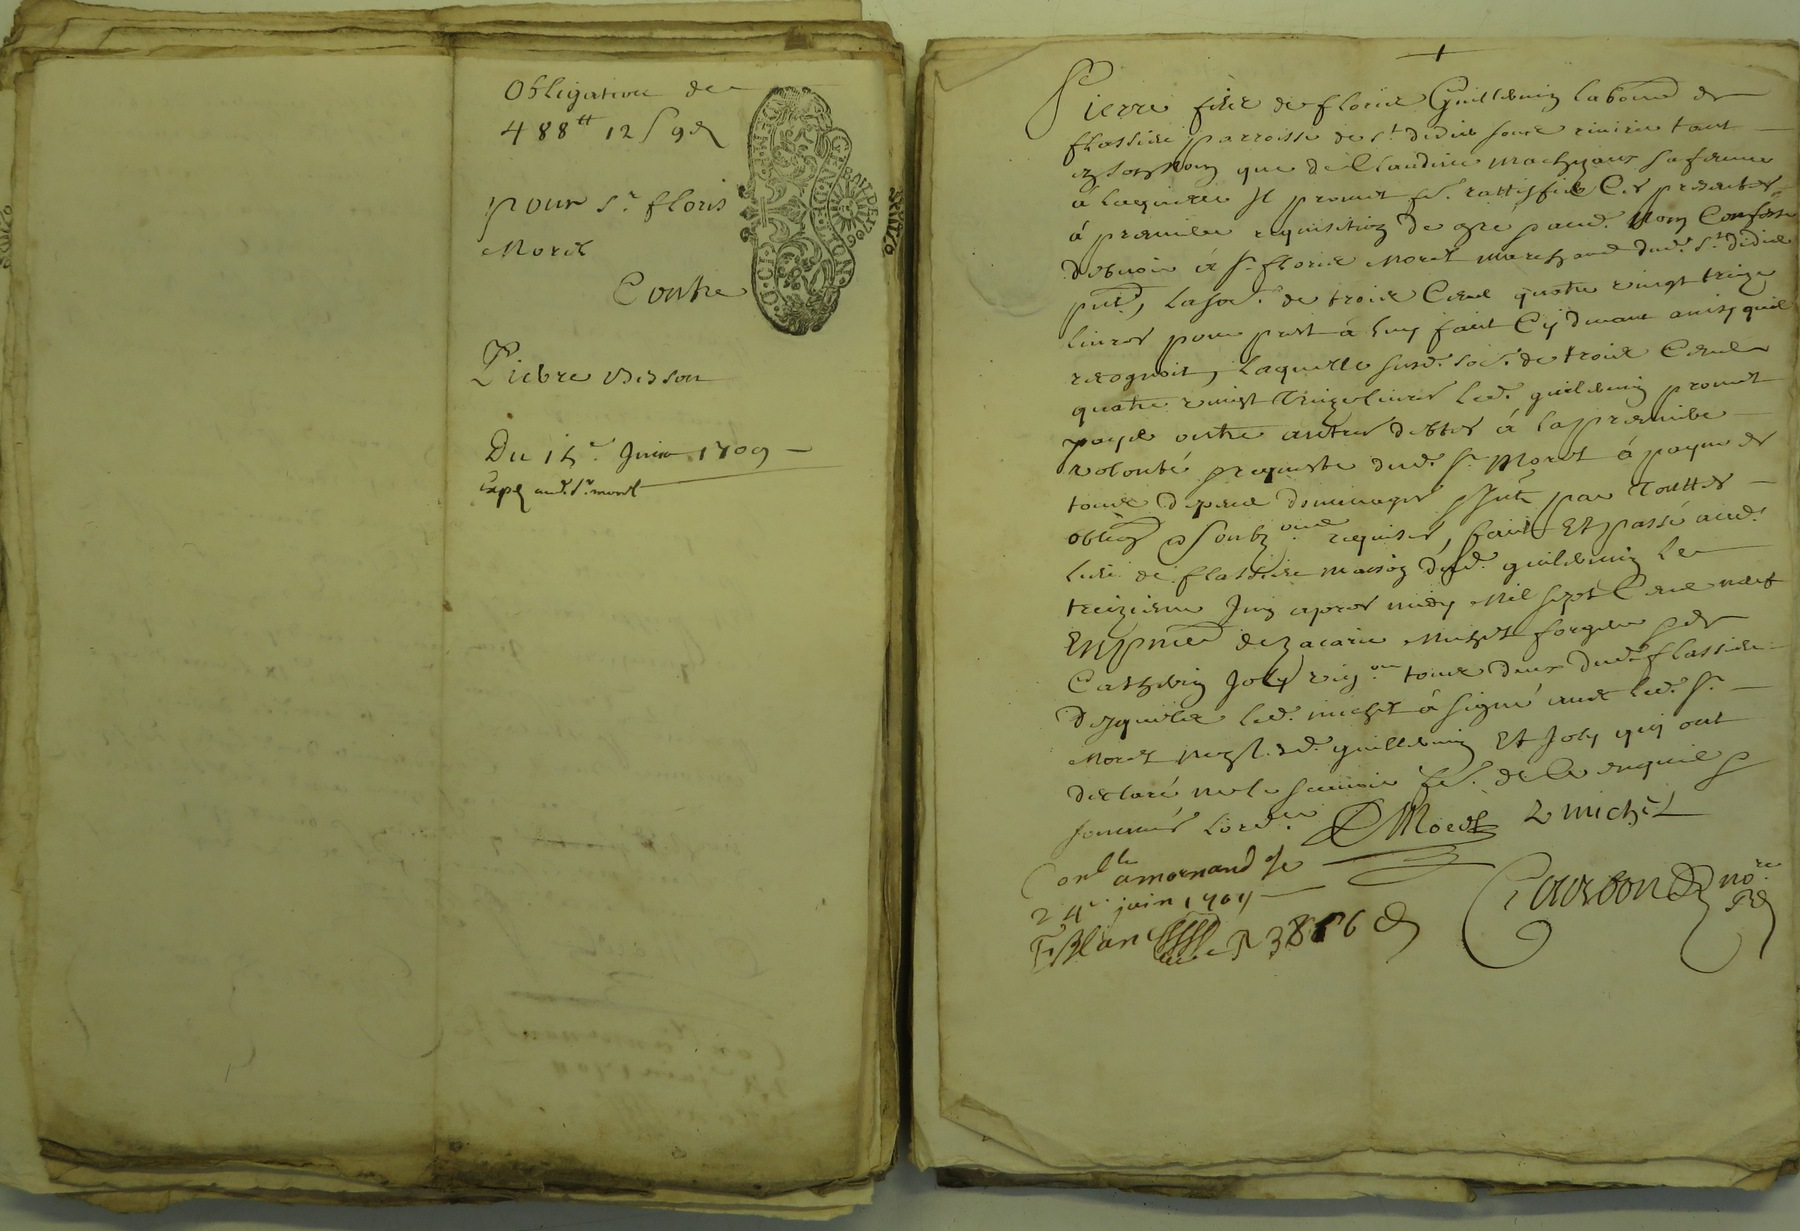 Obligation de
488tt 12 s 9 d
GEN. DE LION.
pour Sr. floris
Morel
Contre
Pierre
Du 15e. Juin 1709
expé aud. Sr. morel
Pierre fils de floris Guillermin labour de
flassieu parroisse de St. didier soubz riviere tant
en son nom que de Claudine sa femme
a laquelle Il promet fe. rattiffier Ces presentes
á premiere requisition de gré pand. Nom Confesse
debvoir á Sr. floris Morel marchand dud. St. didier
pnt, la so.e de trois Cent quatre vingt treize
livres pour prest á luy fait Cy devant ainsy quil
recognoit, laquelle susd. so.e de trois Cent
quatre vingt Treize livres led. guillermin promet
payer outre autres debtes á la premiere
volonté requeste dud. Sr. Morel á payne de
tous depens dommages par Touttes
oblig soubz requises, fait Et passé aud.
lieu de flassieu maison dud. guillermin le
treizieme Juin apres midy Mil sept Cent neuf
En pnce de zacarie Michel forgeur
Joly vig.on tous deux dud. flassieu
Desquels led. michel á signé avec led. Sr.
Morel non led. guillermin Et Joly quy ont
declaré ne le sçavoir fe. de Ce enquis
sommés Morel Z michel
Conlle a mornand le
24e. juin 1709
Courbon no.re